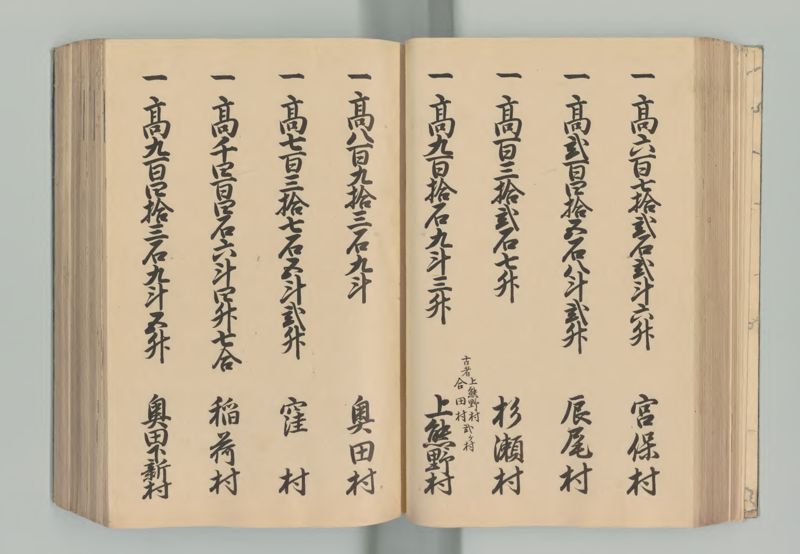 一 高六百七拾弐石弐斗六升 宮保村
一 高弐百四拾五石八斗弐升 辰尾村
一 高百三拾弐石七升 杉瀬村
古者上熊野村
合田村弐ヶ村
一 高九百拾石九斗三升 上熊野村
一 高八百九拾三石九斗 奥田村
一 高七百三拾七石五斗弐升 窪村
一 高千四百四石六斗四升七合 稲荷村
一 高九百四拾三石九斗五升 奥田下新村